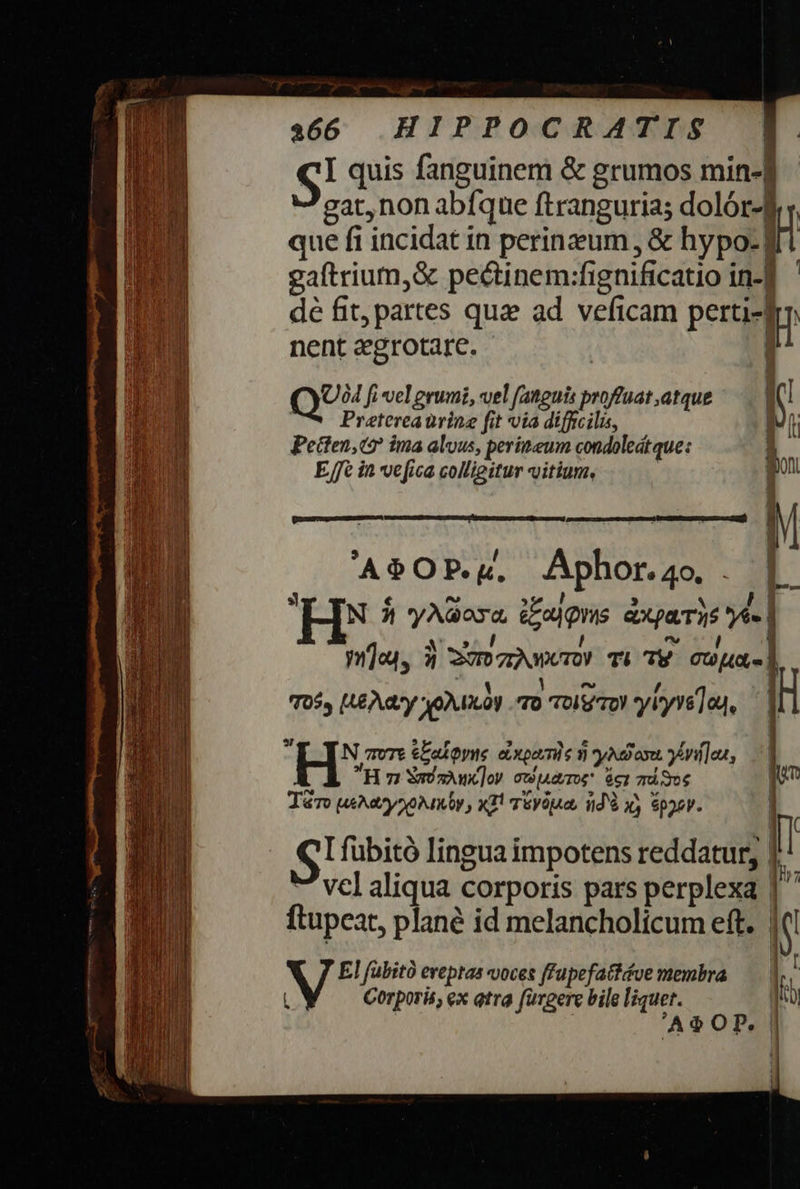 366 HIPPOCRATIS
SI quis ſanguinem & grumos min-
gat, non abſque ſtranguria; dolór-
que ſi incidat in perinæum, & hypo-
gaſtrium, & pectinem: ſignificatio in-
dè fit, partes quæ ad veſicam perti-
nent ægrotare.
QUòd ſi vel grumi, vel ſanguis profluat, atque
Præterea urinæ fit via difficilis,
Pecten, & ima alvus, perinæum condoleátque:
Eſſe in veſica colligitur vitium.
ἈΦΟΡ. μ. Aphor. 40.
ἪΝ ἡ γλῶσσα ἐξαίφνης ἀκρατὴς γέ-
νηται, ἢ ἀπόπληκτόν τι τȣ͂ σώμα-
τος, μελαγχολικὸν τὸ τοιȣ͂τον γίγνεται,
ἪΝ ποτε ἐξαίφνης ἀκρατὴς ἡ γλῶσσα γένηται,
Ἤ τι ἀπόπληκτον σώματος· ἔςι πάθος
Τȣ͂το μελαγχολικόν, κατ' τȣ́νομα ἠδὲ καὶ ἔργον.
SI ſubitò lingua impotens reddatur,
vel aliqua corporis pars perplexa
ſtupeat, planè id melancholicum eſt.
VEl ſubitò ereptas voces ſtupefactáve membra
Corporis, ex atra ſurgere bile liquet.
ἈΦΟΡ.